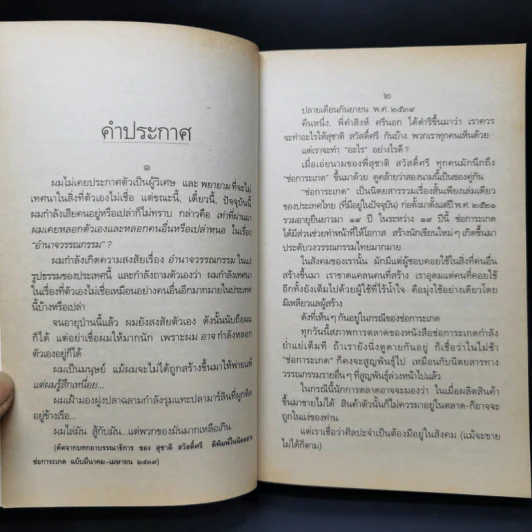 คำประกาศ
๑
ผมไม่เคยประกาศตัวเป็นผู้วิเศษ และ พยายาม ที่จะไม่
เทศนาในสิ่งที่ตัวเองไม่เชื่อ แต่ขณะนี้, เดี๋ยวนี้, ปัจจุบันนี้
ผมกำลังเสียคนอยู่หรือเปล่าก็ไม่ทราบ กล่าวคือ เท่าที่ผ่านมา
ผมเคยหลอกตัวเองและหลอกคนอื่นหรือเปล่าหนอ ในเรื่อง
"อำนาจวรรณกรรม" ?
ผมกำลังเกิดความสงสัยเรื่อง อำนาจวรรณกรรม ในแง่
รูปธรรมของประเทศนี้ และกำลังถามตัวเองว่า ผมกำลังเทศนา
ในเรื่องที่ตัวเองไม่เชื่อเหมือนอย่างคนอื่นอีกมากมายในประเทศ
นี้บ้างหรือเปล่า
จนอายุป่านนี้แล้ว ผมยังสงสัยตัวเอง ดังนั้นนับถือผม
ก็ได้ แต่อย่าเชื่อผมให้มากนัก เพราะผม อาจ กำลังหลอก
ตัวเองอยู่ก็ได้
ผมเป็นมนุษย์ แม้ผมจะไม่ได้ถูกสร้างขึ้นมาให้พ่ายแพ้
แต่ผมรู้สึกเหนื่อย...
ผมเฝ้ามองฝูงปลาฉลามกำลังรุมแทะปลามาร์ลินที่ผูกติด
อยู่ข้างเรือ...
ผมไล่มัน สู้กับมัน...แต่พวกของมันมากเหลือเกิน
(คัดจากบทกอาบรรณาธิการ ของ สุชาติ สวัสดิ์ศรี ตีพิมพ์ในนิตยสาร
ช่อการะเกด ฉบับมีนาคม-เมษายน ๒๕๓๙)
๒
ปลายเดือนกันยายน พ.ศ. ๒๕๓๙
คืนหนึ่ง, พี่คำสิงห์ ศรีนอก ได้ดำริขึ้นมาว่า เราควร
จะทำอะไรให้สุชาติ สวัสดิ์ศรี กันบ้าง พวกเราทุกคนเห็นด้วย
แต่เราจะทำ "อะไร" อย่างไรดี ?
เมื่อเอ่ยนามของพี่สุชาติ สวัสดิ์ศรี ทุกคนมักนึกถึง
"ช่อการะเกด" ขึ้นมาด้วย ดูคล้ายว่าสองนามนี้เป็นของคู่กัน
"ช่อการะเกด" เป็นนิตยสารรวมเรื่องสั้นเพียงเล่มเดียว
ของประเทศไทย (ที่มีอยู่ในปัจจุบัน) ก่อตั้งมาตั้งแต่ปี พ.ศ. ๒๕๒๑
รวมอายุยืนยาวมา ๑๙ ปี ในระหว่าง ๑๙ ปีนี้ ช่อการะเกด
ได้มีส่วนช่วยทำหน้าที่ให้โอกาส สร้างนักเขียนใหม่ๆ เกิดขึ้นมา
ประดับวงวรรณกรรมไทยมากมาย
ในสังคมของเรานั้น มักมีแต่ผู้ชอบคอยใช้ในสิ่งที่คนอื่น
สร้างขึ้นมา เราขาดแคลนคนที่สร้าง เราอุดมแต่คนที่คอยใช้
อีกทั้งยังเต็มไปด้วยผู้ใช้ที่ไร้น้ำใจ คือมุ่งใช้อย่างเดียวโดย
มิเหลียวแลผู้สร้าง
ดังที่เห็นๆ กันอยู่ในกรณีของช่อการะเกด
ทุกวันนี้สภาพการตลาดของหนังสือช่อการะเกดกำลัง
ย่ำแย่เต็มที ถ้าเรายังนิ่งดูดายกันอยู่ ก็เชื่อว่าในไม่ช้า
"ช่อการะเกด" ก็คงจะสูญพันธุ์ไป เหมือนกับนิตยสารทาง
วรรณกรรมรายอื่นๆ ที่สูญพันธุ์ล่วงหน้าไปแล้ว
ในกรณีนี้นักการตลาดอาจจะมองว่า ในเมื่อผลิตสินค้า
ขึ้นมาขายไม่ได้ สินค้าตัวนั้นก็ไม่ควรมาอยู่ในตลาด-ก็อาจจะ
ถูกในแง่ของท่าน
แต่เราเชื่อว่าศิลปะจำเป็นต้องมีอยู่ในสังคม (แม้จะขาย
ไม่ได้ก็ตาม)